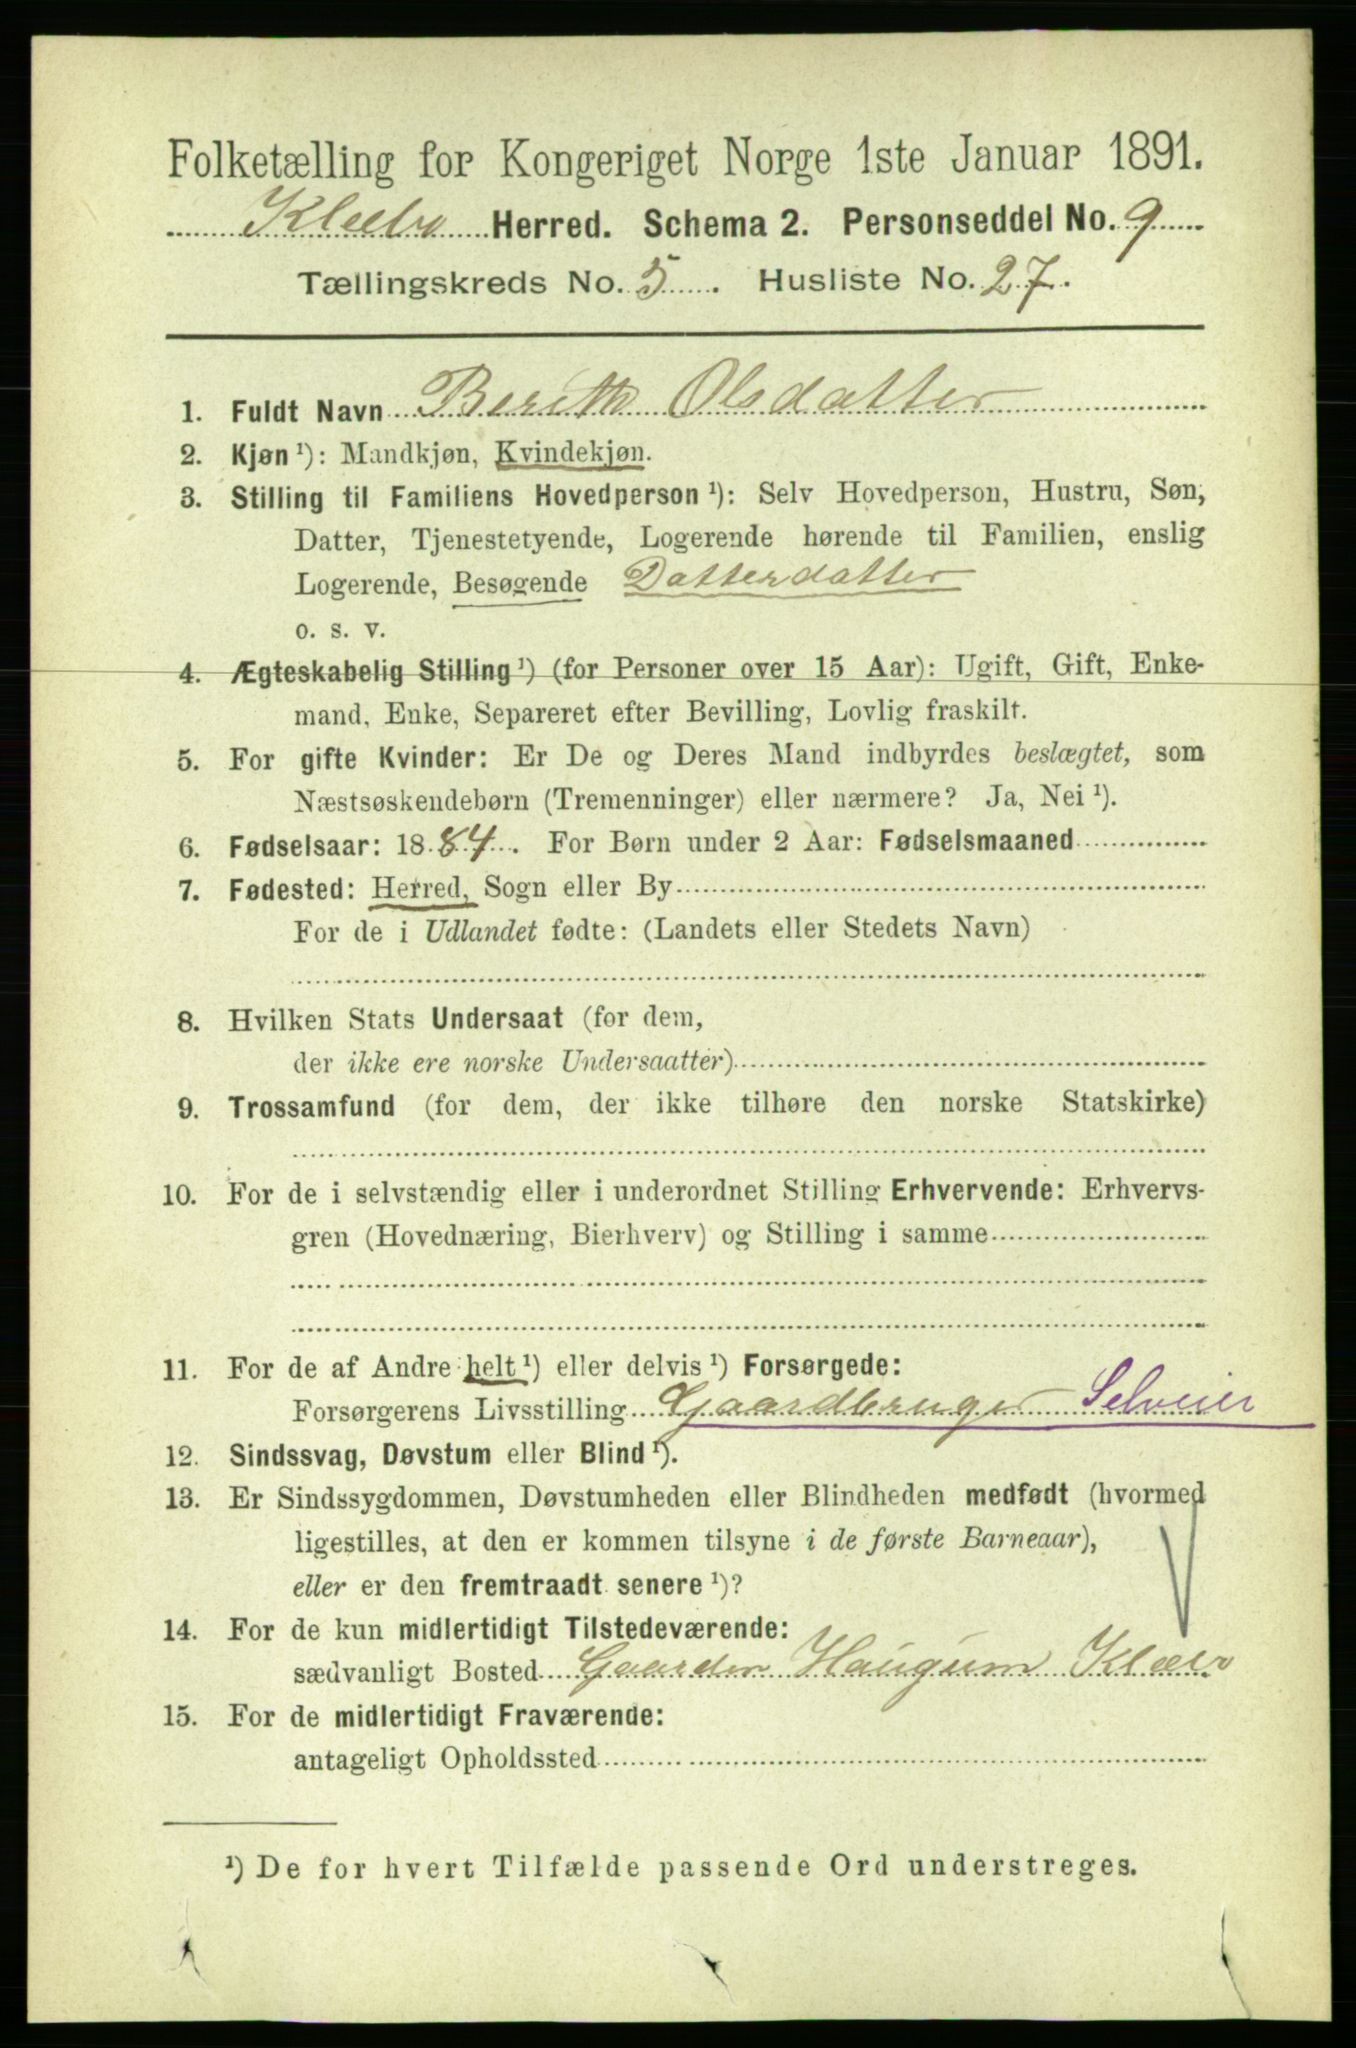 Folketælling for Kongeriget Norge 1ste Januar 1891.
Klæbo Herred. Schema 2. Personseddel No. 9
Tællingskreds No. 5. Husliste No. 27.
1. Fuldt Navn Berith Olsdatter
2. Kjøn ¹): Mandkjøn, Kvindekjøn.
3. Stilling til Familiens Hovedperson ¹): Selv Hovedperson, Hustru, Søn,
Datter, Tjenestetyende, Logerende hørende til Familien, enslig
Logerende, Besøgende Datterdatter
o. s. v.
4. Ægteskabelig Stilling ¹) (for Personer over 15 Aar): Ugift, Gift, Enke-
mand, Enke, Separeret efter Bevilling, Lovlig fraskilt.
5. For gifte Kvinder: Er De og Deres Mand indbyrdes beslægtet, som
Næstsøskendebørn (Tremenninger) eller nærmere? Ja, Nei ¹).
6. Fødselsaar: 1884. For Børn under 2 Aar: Fødselsmaaned
7. Fødested: Herred, Sogn eller By
For de i Udlandet fødte: (Landets eller Stedets Navn)
8. Hvilken Stats Undersaat (for dem,
der ikke ere norske Undersaatter)
9. Trossamfund (for dem, der ikke tilhøre den norske Statskirke)
10. For de i selvstændig eller i underordnet Stilling Erhvervende: Erhvervs-
gren (Hovednæring, Bierhverv) og Stilling i samme
11. For de af Andre helt ¹) eller delvis ¹) Forsørgede:
Forsørgerens Livsstilling Gaardbruger Selveier
12. Sindssvag, Døvstum eller Blind ¹).
13. Er Sindssygdommen, Døvstumheden eller Blindheden medfødt (hvormed
ligestilles, at den er kommen tilsyne i de første Barneaar),
eller er den fremtraadt senere ¹)?
14. For de kun midlertidigt Tilstedeværende:
sædvanligt Bosted Gaarden Haugum
15. For de midlertidigt Fraværende:
antageligt Opholdssted
¹) De for hvert Tilfælde passende Ord understreges.